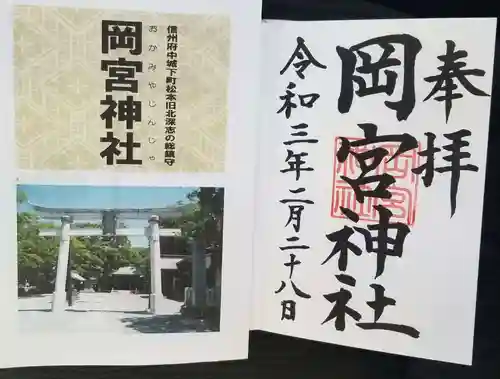 信州府中城下町松本旧北深志の総鎮守
おかみやじんじゃ
岡宮神社
奉拝
岡宮神社
令和三年二月二十八日